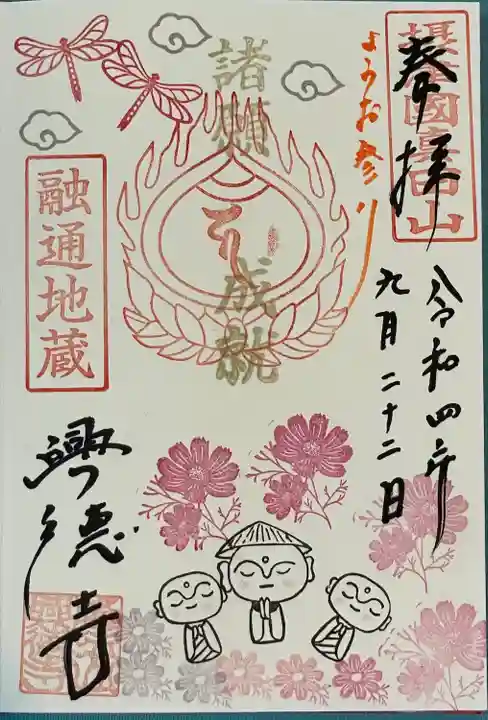 奉拝
摂津國豊田山
ようお参り
令和四年
九月二十二日
諸願成就
融通地蔵
興德寺